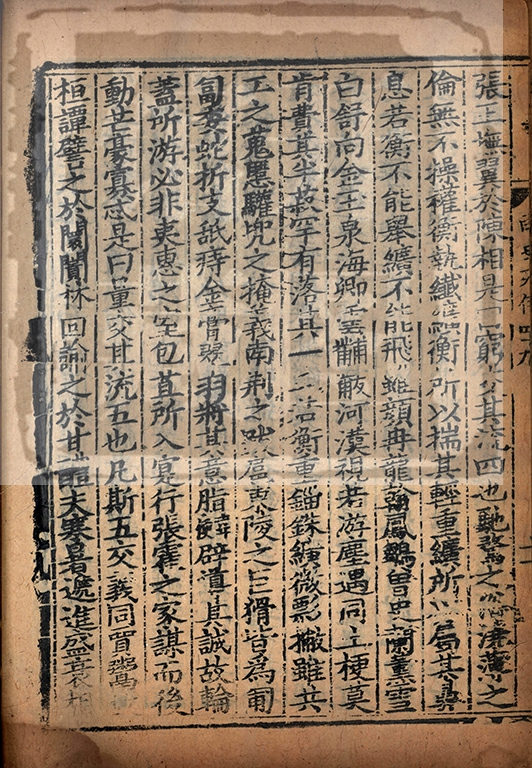 張王撫翼於陳相是曰窮交其流四也馳騖之俗澆薄之
倫無不操權衡執纖纊衡所以揣其輕重纊所以屬其鼻
息若衡不能舉纊不能飛雖顏冉龍翰鳳鶵曾史蘭薰雪
白舒向金玉泉海卿雲黼黻河漢視若游塵遇同土梗莫
肯費其半菽罕有落其一毛若衡重錙銖纊微彯撇雖共
工之蒐慝驩兜之掩義南荆之跋扈東陵之巨猾皆爲匍
匐委蛇折支舐痔金膏翠羽將其意脂韋便辟道其誠故輪
蓋所游必非夷惠之室包苴所入寔行張霍之家謀而後
動芒豪寡忒是曰量交其流五也凡斯五交義同賈鬻
桓譚譬之於闤闠林回諭之於甘醴夫寒暑遞進盛衰相